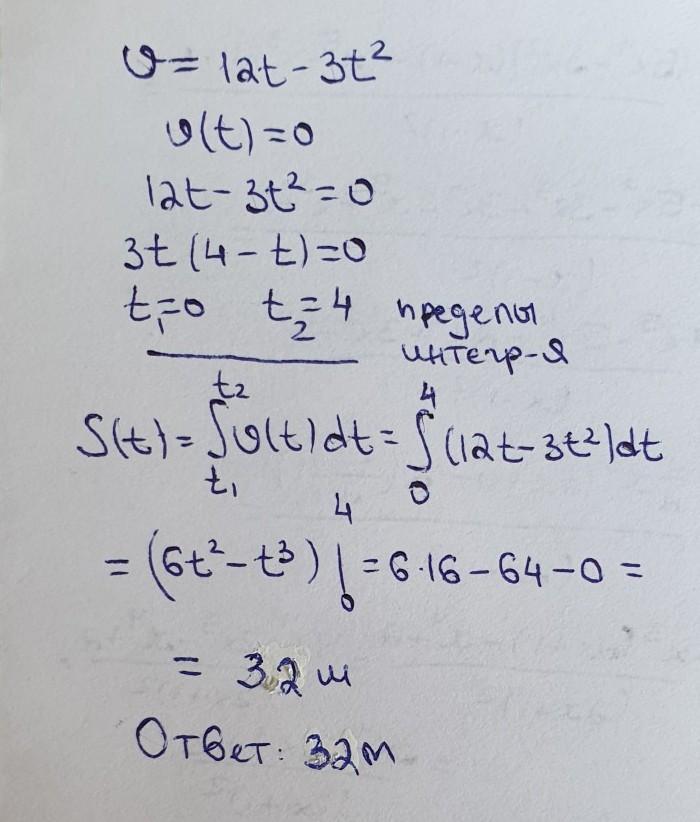 υ = 12t - 3t²
υ(t) = 0
12t - 3t² = 0
3t (4 - t) = 0
t₁ = 0 t₂ = 4 пределы
интегр-я
S(t) = ∫ₜ₁ᵗ² υ(t) dt = ∫₀⁴ (12t - 3t²) dt
= (6t² - t³) |₀⁴ = 6·16 - 64 - 0 =
= 32 м
Ответ: 32м